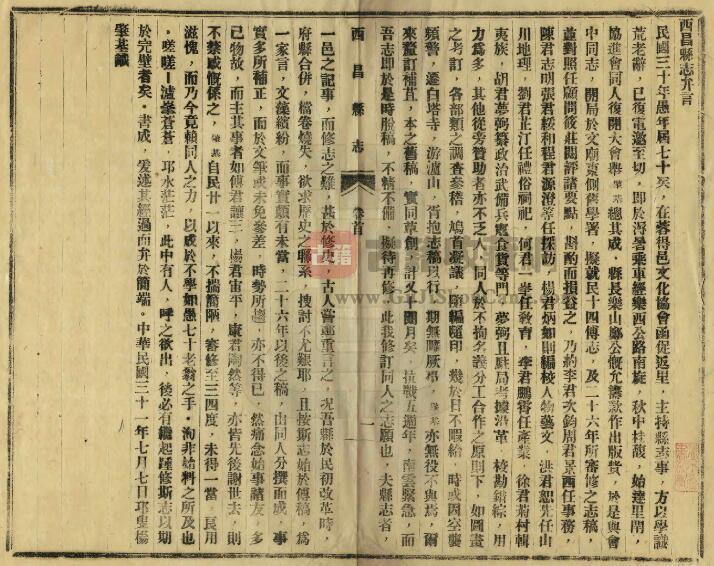 西昌縣志弁言
民國三十年愚年屆七十矣，在蓉得邑文化協會函促返里，主持縣志事，方以學識
荒老辭，已復電邀至切，即於溽暑乘車經樂西公路南旋，秋中桂馥，始達里閈，
協進會同人復開大會舉肇基總其成，縣長樂山鄺公慨允籌款作出版費，於是與會
中同志，開局於文廟東側舊學署，擬就民十四傅志，及二十六年所審修之志稿，
並對照任顧問筱莊閱評諸要點，斟酌而損益之，乃約李君次鈞周君景西任事務，
陳君志明張君綏和程君源澄等任採訪，楊君炳如則編校人物藝文，洪君恕先任山
川地理，劉君芷汀任禮俗祠祀，何君一峯任教育，李君鵬霄任產業，徐君菊村輯
夷族，胡君夢弼纂政治武備兵寇食貨等門，夢弼且駐局考據沿革，校勘錯綜，用
力為多，其他從旁贊助者亦不乏人，同人於不拘名義分工合作之原則下，如圖畫
之考訂，各部類之調查參稽，鳩首凝議，隨編隨印，幾於日不暇給，時或因空襲
頻警，遷白塔寺，游瀘山，胥抱志稿以行，期無曠厥學，肇基亦無役不與焉，爾
來釐訂補苴，本之舊稿，實同草創，計又十閱月矣，抗戰五週年，南雲緊急，而
吾志即於是時脫稿，不精不備，擬待再修，此我修訂同人之志願也，夫縣志者，
西昌縣志 卷首 一
一邑之記事，而修志之難，甚於修史，古人嘗鄭重言之，况吾縣於民初改革時，
府縣合併，檔卷燒失，欲求歷史之聯系，搜討不尤艱耶，且按斯志始於傅稿，為
一家言，文藻繽紛，而事實頗有未當，二十六年以後之稿，由同人分撰而成，事
實多所補正，而於文筆或未免參差，時勢所趨，亦不得已，然痛念始事諸友，多
已物故，而主其事者如傅君讓三，楊君宙平，康君陶然等，亦皆先後謝世去，則
不禁感慨係之，肇基自民廿一以來，不揣譾陋，審修至三四度，未得一當，良用
滋愧，而乃今竟賴同人之力，以咸於不學如愚七十老翁之手，洵非始料之所及也
，嗟嗟！瀘峯蒼蒼，邛水茫茫，此中有人，呼之欲出，後必有繼起踵修斯志以期
於完璧者矣。書成，爰述其經過而弁於簡端。中華民國三十一年七月七日邛叟楊
肇基識
古籍
www.GuJiShuCang.com